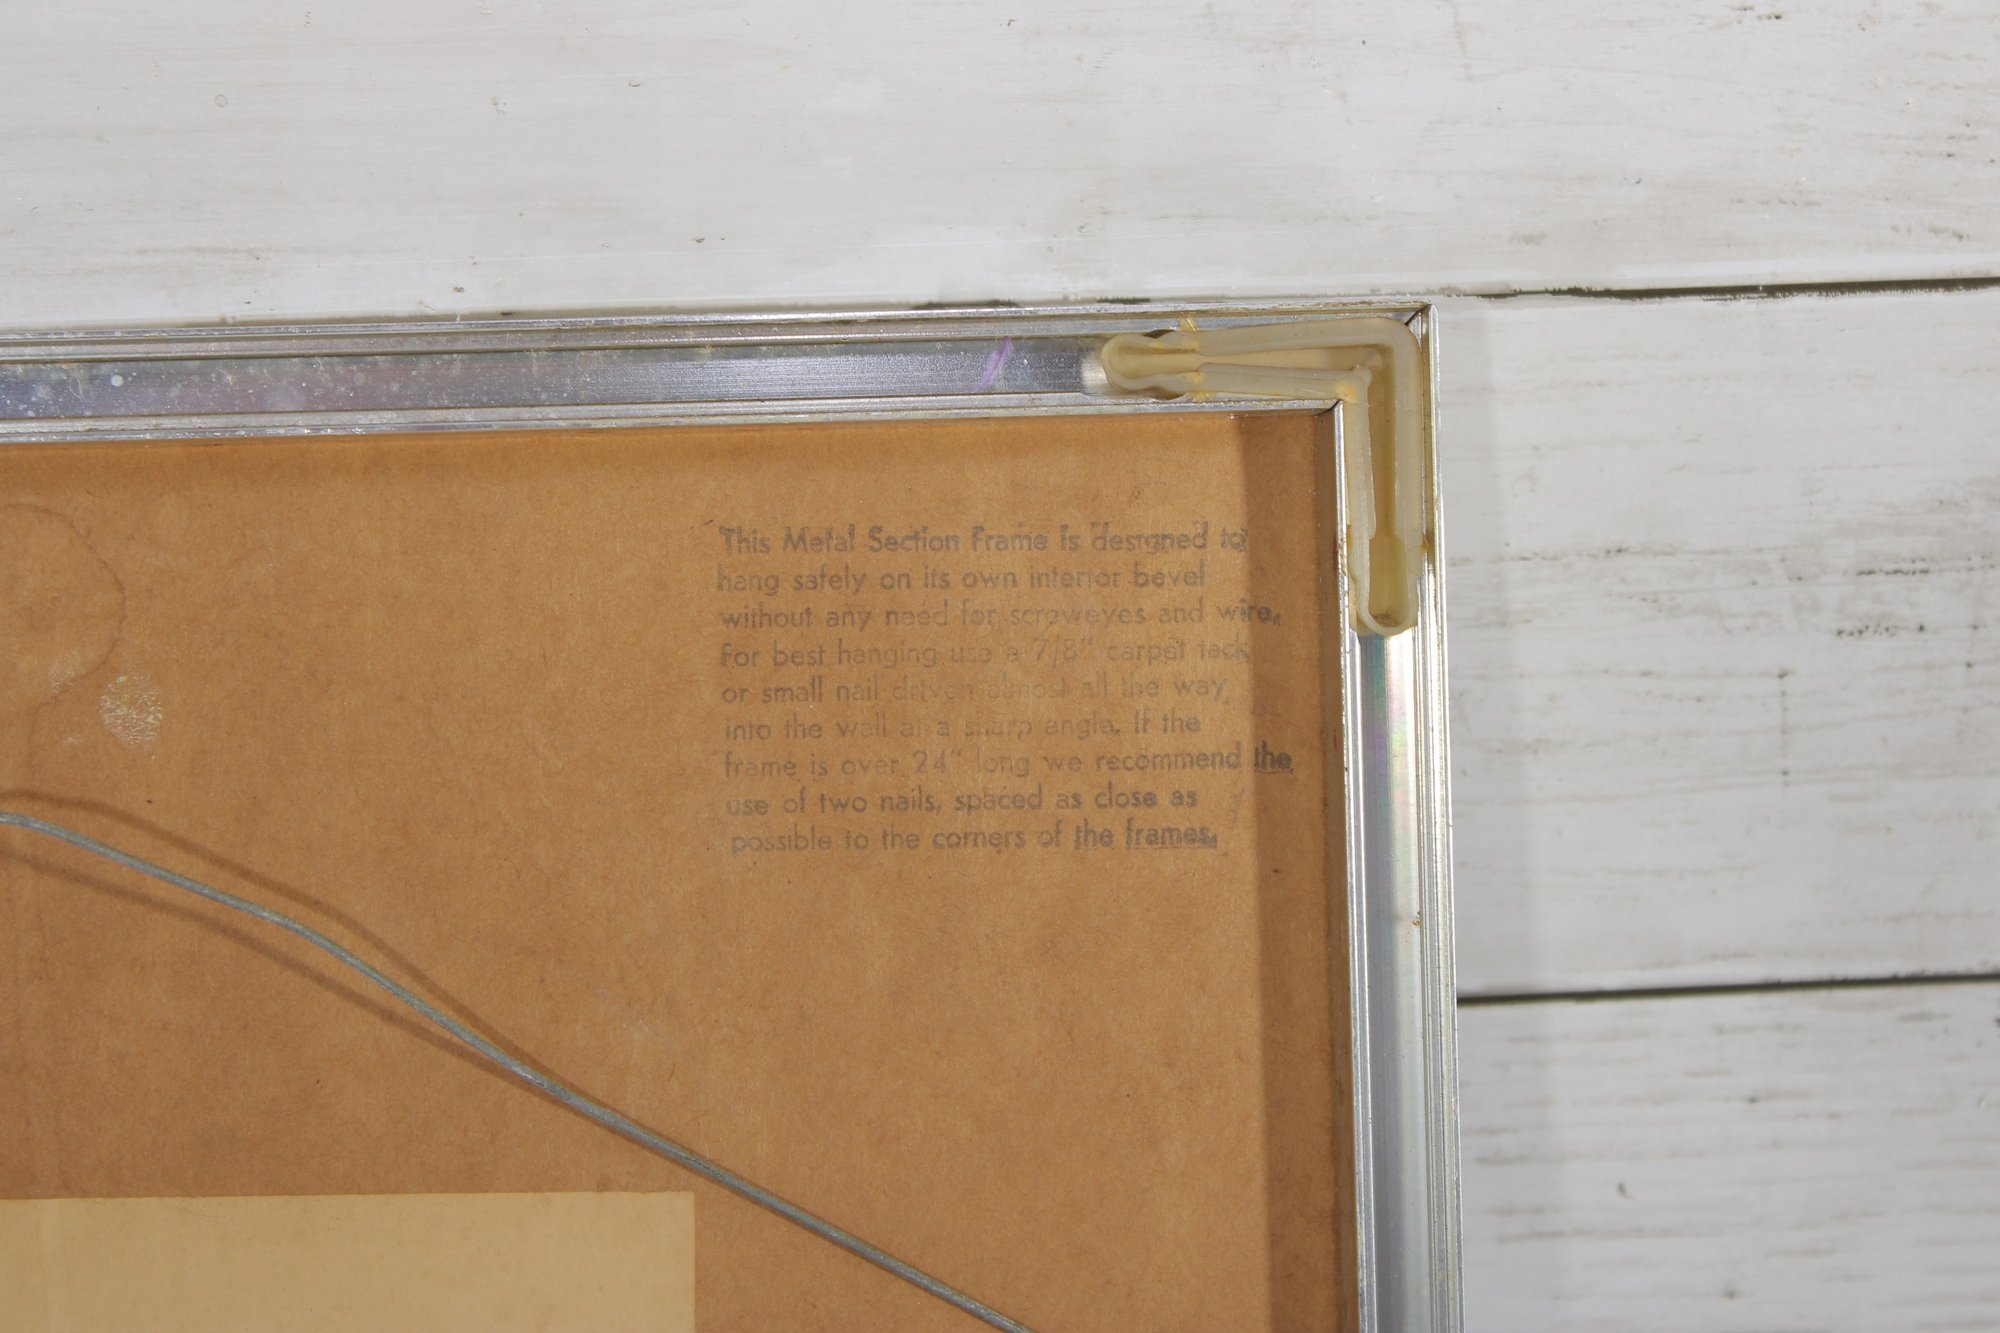 This Metal Section Frame is designed to
hang safely on its own interior bevel
without any need for screweyes and wire.
For best hanging use a 7/8" carpet tack
or small nail driven almost all the way
into the wall at a sharp angle. If the
frame is over 24" long we recommend the
use of two nails, spaced as close as
possible to the corners of the frames.